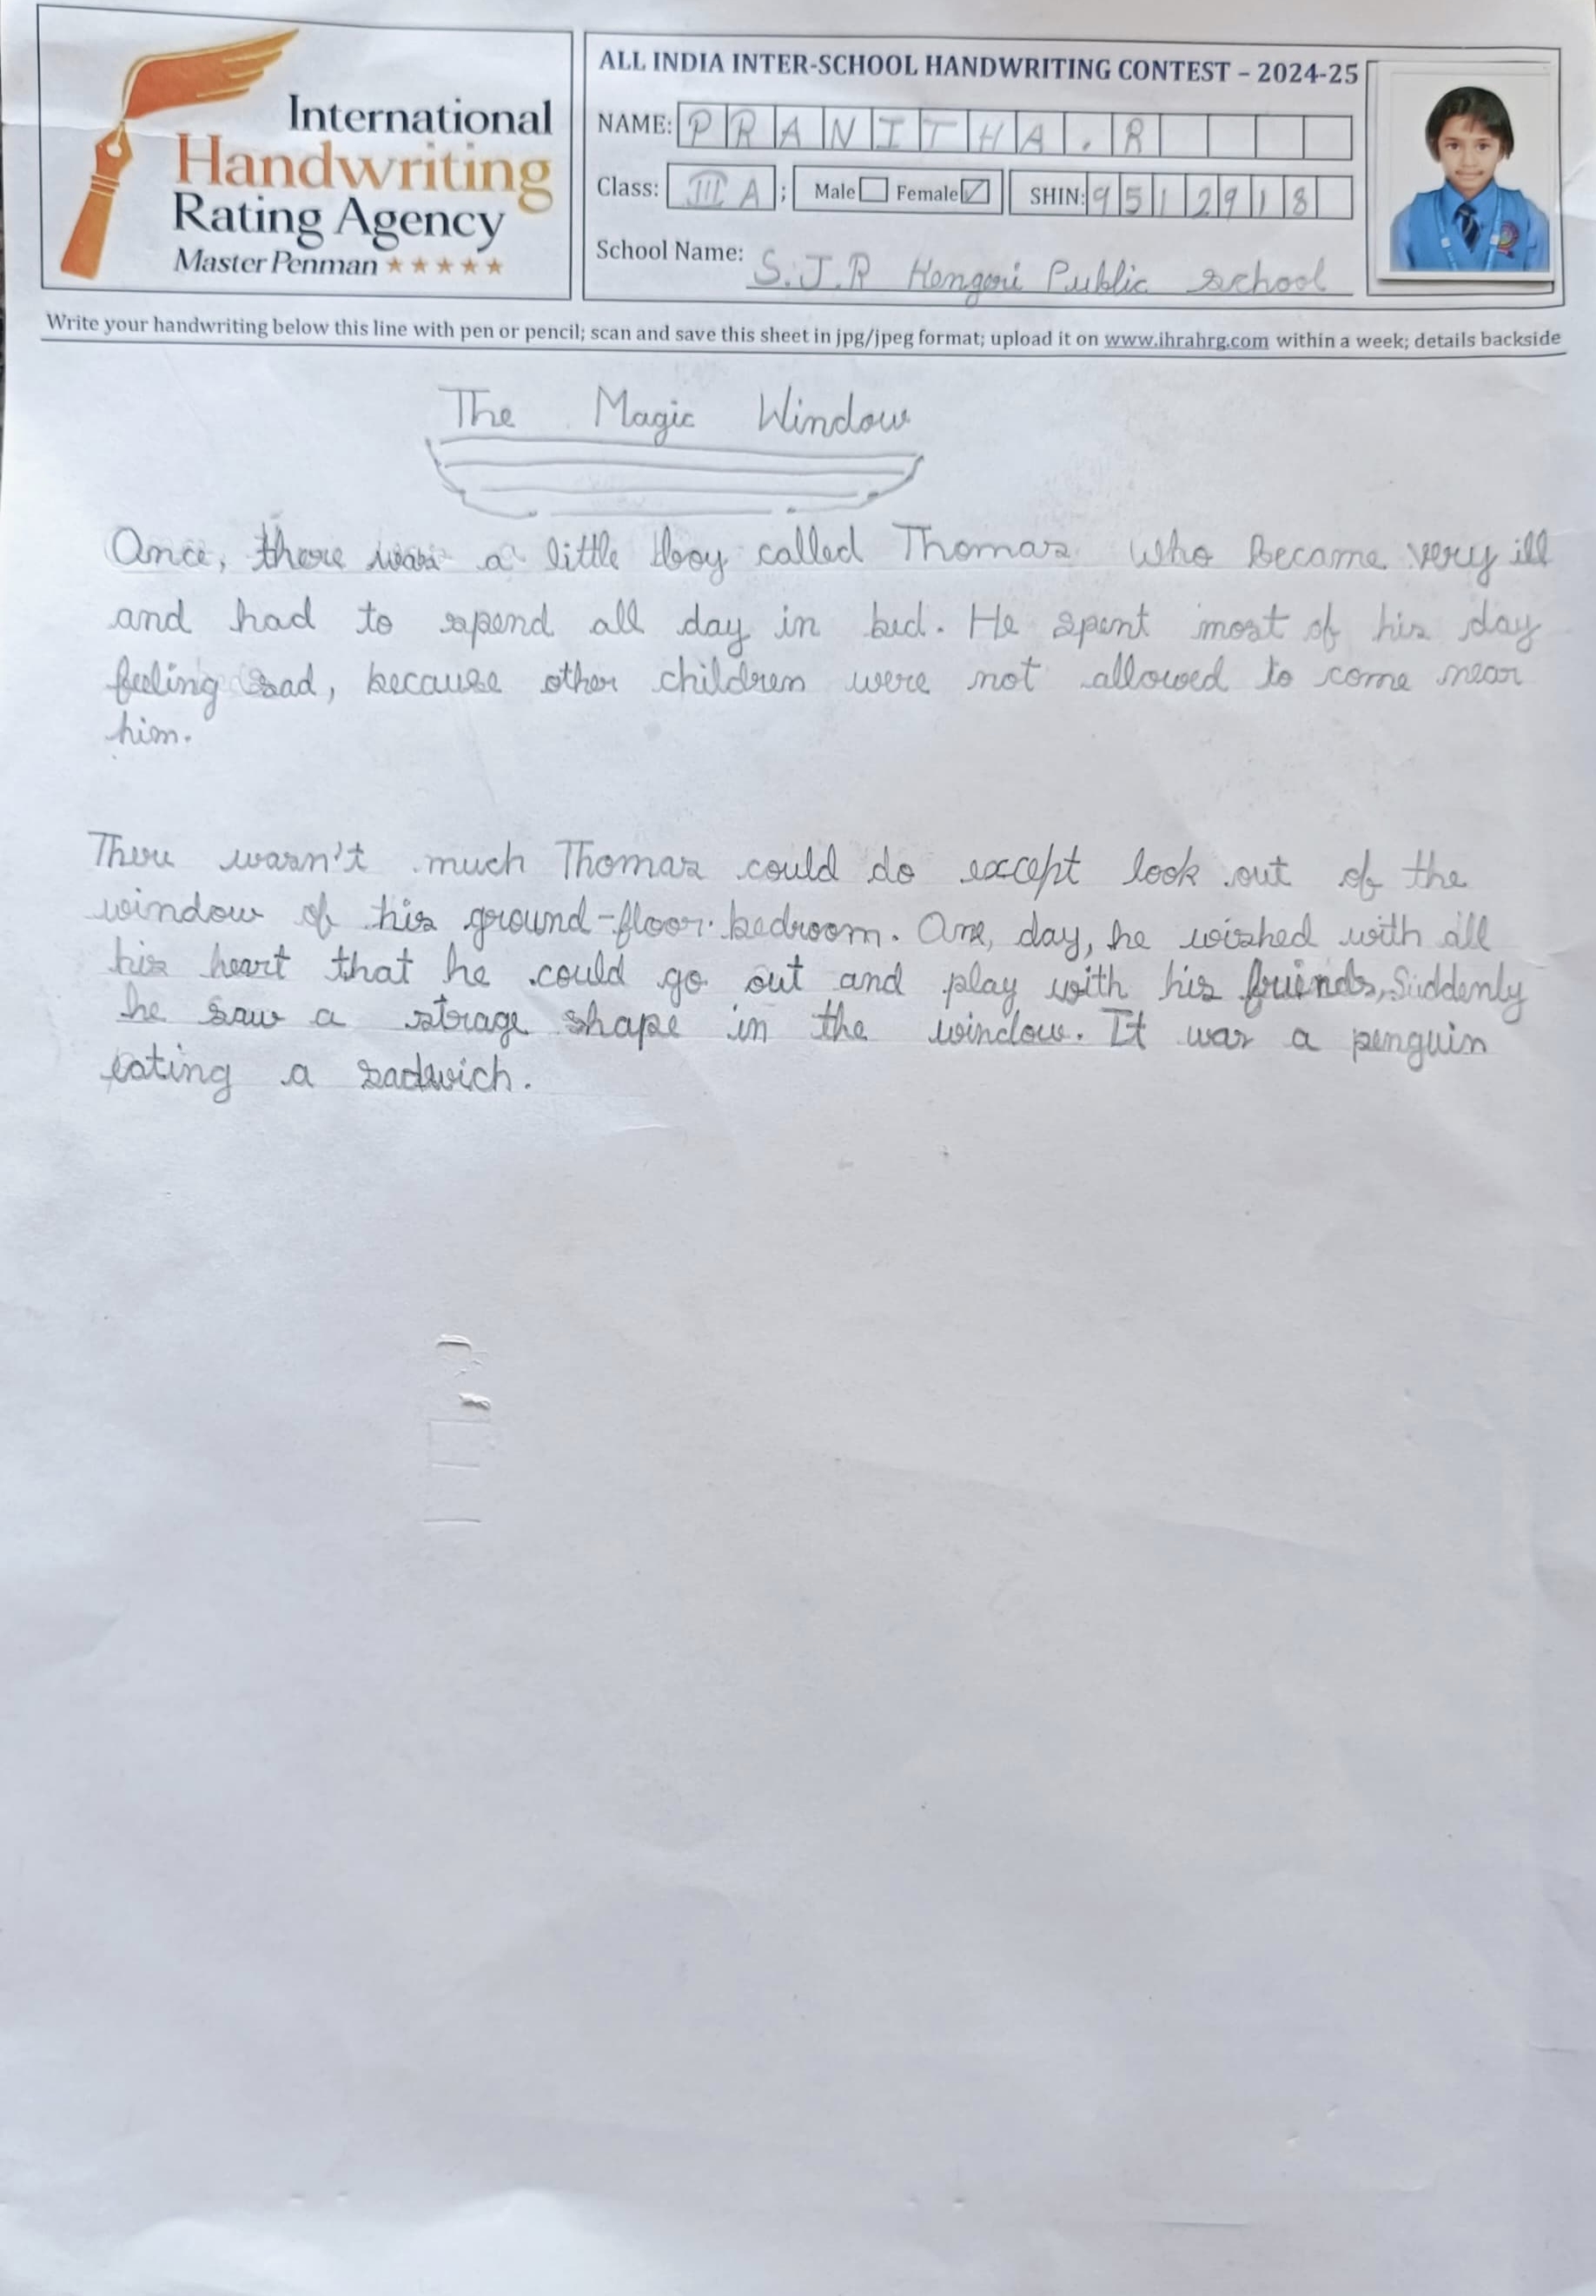 International
Handwriting
Rating Agency
Master Penman ★★★★★
ALL INDIA INTER-SCHOOL HANDWRITING CONTEST – 2024-25
NAME: PRANITHA.R
Class: III A ; Male Female SHIN: 9512918
School Name: S.J.R Kengeri Public school
Write your handwriting below this line with pen or pencil; scan and save this sheet in jpg/jpeg format; upload it on www.ihrahrg.com within a week; details backside
The Magic Window
Once, there was a little boy called Thomas who became very ill
and had to spend all day in bed. He spent most of his day
feeling sad, because other children were not allowed to come near
him.
There wasn't much Thomas could do except look out of the
window of his ground-floor bedroom. One, day, he wished with all
his heart that he could go out and play with his friends, Suddenly
he saw a strage shape in the window. It was a penguin
eating a sadwich.